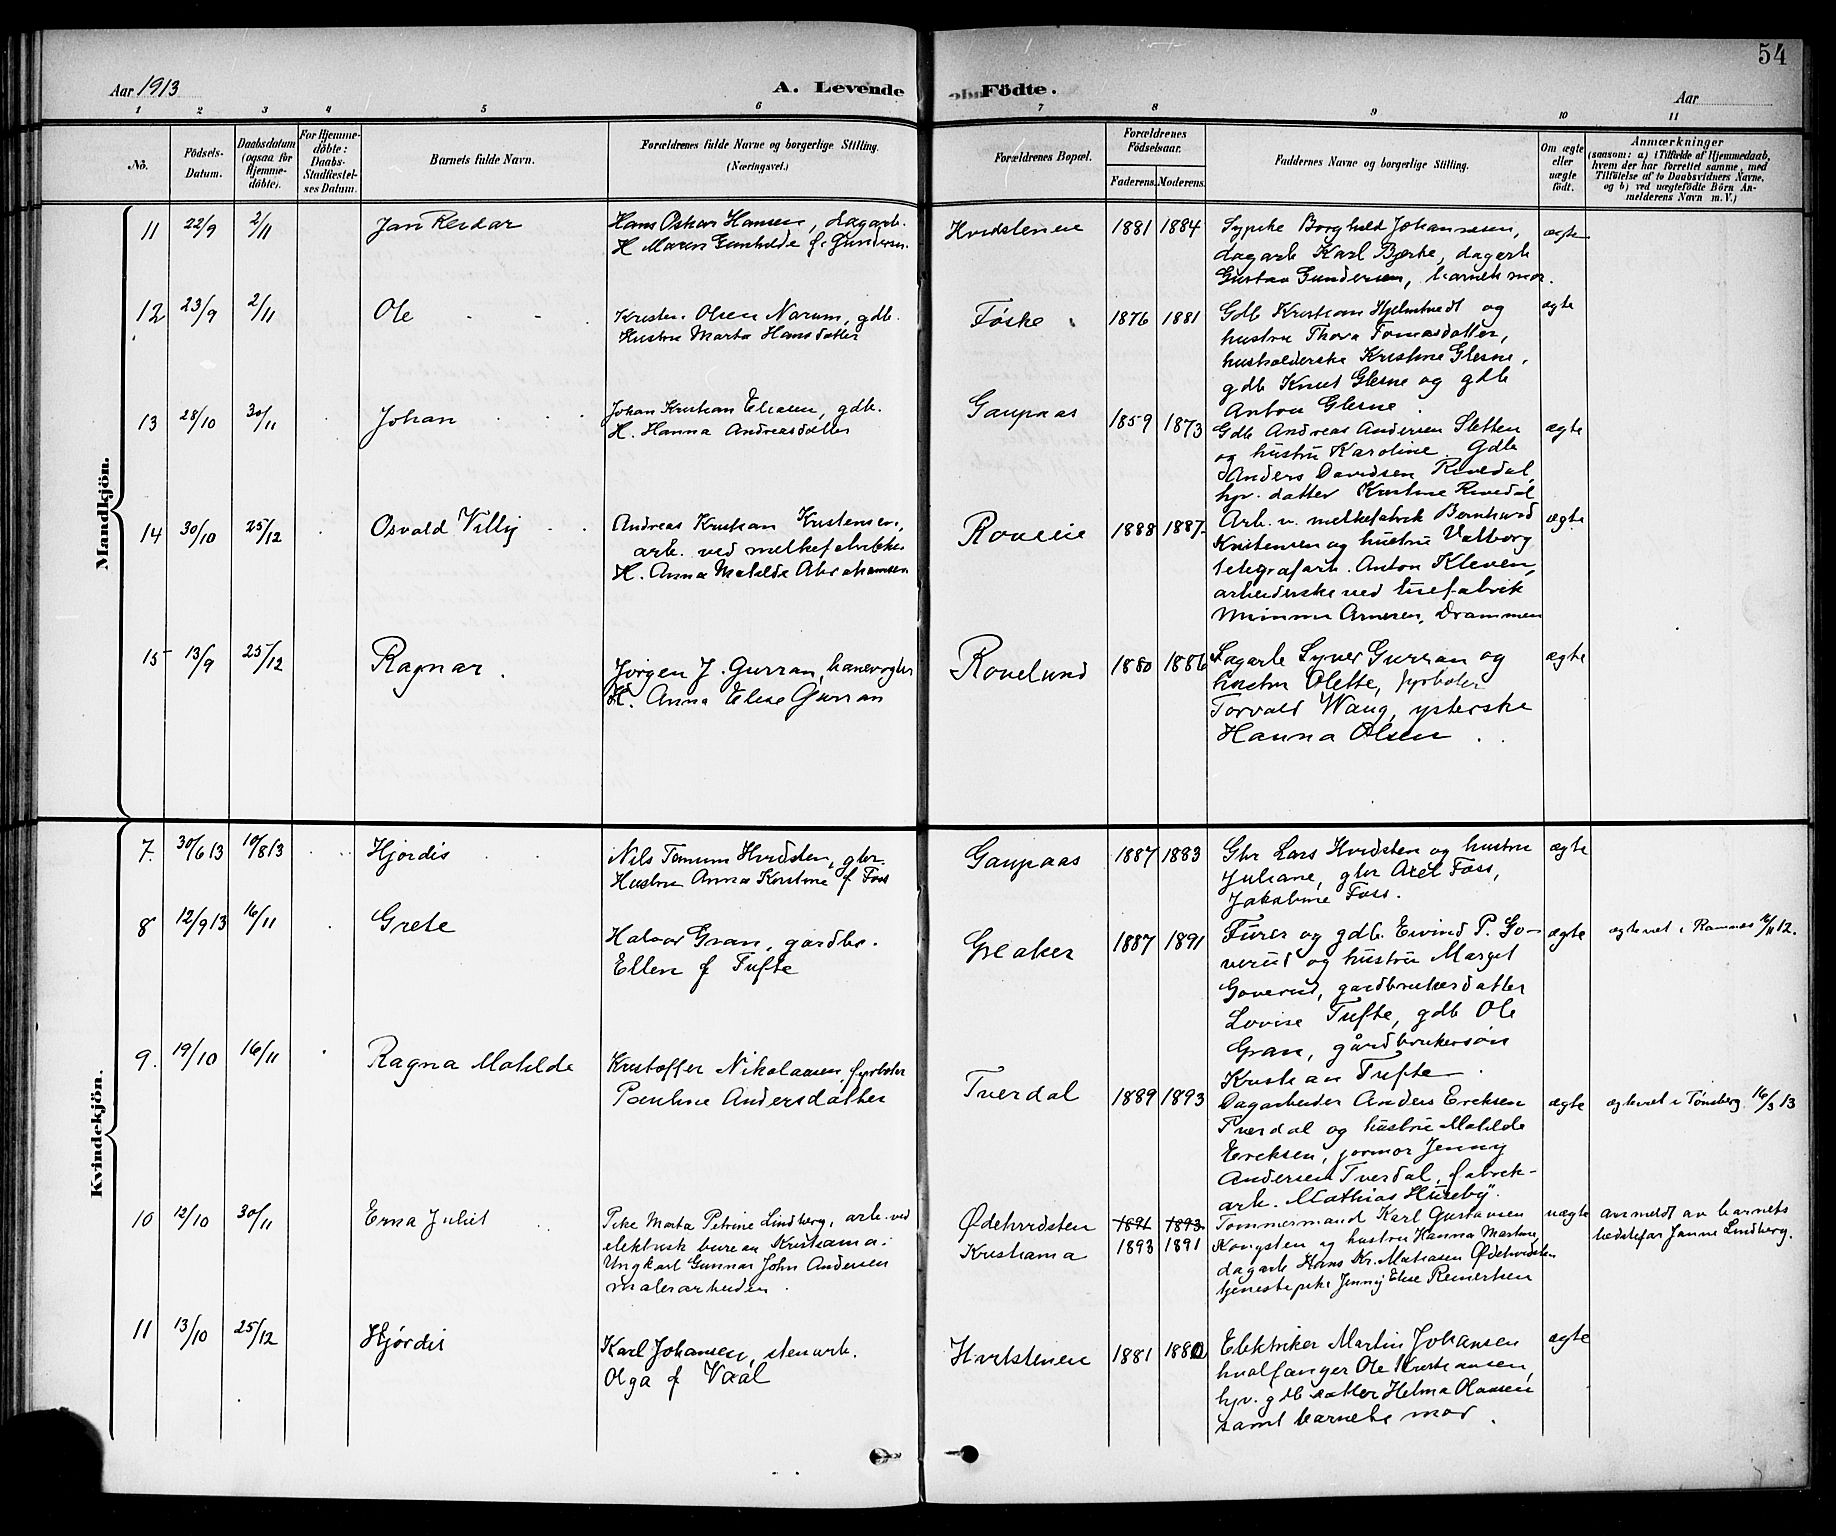 54
Aar 1913
A. Levende Födte.
Aar
1 2 3 4 5 6 7 8 9 10 11
Nô.
Födsels-Datum.
Daabsdatum (ogsaa for Hjemme-döbte).
For Hjemme-döbte: Daabs-Stadfæstel-ses Datum.
Barnets fulde Navn.
Forældrenes fulde Navne og borgerlige Stilling. (Næringsvei.)
Forældrenes Bopæl.
Forældrenes Födselsaar.
Faderens. Moderens.
Faddernes Navne og borgerlige Stilling.
Om ægte eller uægte födt.
Anmærkninger
(saasom: a) i Tilfælde af Hjemmedaab, hvem der har forrettet samme, med Tilföielse af to Daabsvidners Navne, og b) ved uægtefödte Börn An-melderens Navn m. V.)
Mandkjön.
11 22/9 2/11 Jan Reidar
Hans Oskar Hansen, dagarb.
H. Maren Gunhilde f. Gundersen
Hvidsteneie 1881 1884
Sypike Borghild Johannesen,
dagarb Karl Bjerke, dagarb
Gustav Gundersen, barnets mor.
ægte
12 23/9 2/11 Ole
Kristen Olsen Narum, gdb.
Hustru Marta Hansdatter
Föske 1876 1881
Gdb Kristian Hjelmtvedt og
hustru Thora Tomasdatter,
husholderske Kristine Glesne,
gdb Knut Glesne og gdb
Anton Glesne.
ægte
13 28/10 30/11 Johan
Johan Kristian Eliasen, gdb.
H. Hanna Andreasdatter
Gaupaas 1859 1873
Gdb Andreas Andersen Sletten
og hustru Karoline. Gdb
Anders Davidsen Revedal,
hjv. datter Kristine Revedal
ægte
14 30/10 25/12 Osvald Villy
Andreas Kristian Kristensen,
arb. ved melkefabrikken
H. Anna Matilde Abrahamsen
Roveeie 1888 1887
Arb. v. melkefabrik Bernhard
Kristensen og hustru Valborg
telegrafarb. Anton Kleven,
arbeiderske ved
Mimmi Arnesen, Drammen
ægte
15 13/9 25/12 Ragnar.
Jörgen J. Gurran, banevogter
H. Anna Elise Gurran
Rovelund 1880 1886
Sagarb Syver Gurran og
hustru Olette, fyrböter
Torvald Wang, ysterske
Hanna Olsen.
ægte
Kvindekjön.
7. 30/6 13 10/8 13 Hjordis
Nils Tomum Hvidsten, gbr.
Hustru Anna Kristine f Foss
Gaupaas 1887 1883
Gbr Lars Hvidsten og hustru
Juliane, gbr Axel Foss,
Jakobine Foss.
ægte
8 12/9 13 16/11 Grete
Halvor Gran, gardbr.
Ellen f Tufte
Greaker 1887 1891
Furer og gdb. Eivind P. Go-
verud og hustru Marget
Goverud, gardbrukersdatter
Lovise Tufte, gdb Ole
Gran, gårdbrukersön
Kristian Tufte.
ægte
ægteviet i Ramnes /11 12.
9. 19/10 16/11 Ragna Matilde
Kristoffer Nikolaisen, fyrböter
Pauline Andersdatter
Tverdal 1889 1893
Dagarbeider Anders Ereksen
Tverdal og hustru Matilde
Ereksen, jormor Jenny
Andersen Tverdal, fabrik-
arb. Mathias Huseby.
ægte
ægteviet i Tønsberg 16/3 13
10 12/10 30/11 Erna Juliet
Pike Marta Petrine Lindberg, arb. ved
elektrisk bureau Kristiania.
Ungkarl Gunnar John Andersen
malerarbeider.
Ødehvidsten 1891 1893
Kristiania 1893 1891
Tømmermand Karl Gustavsen
Kongsten og hustru Hanna Martine,
dagarb Hans Kr. Mathisen Ødehvidsten
tjenestepike Jenny Elise Reinertsen
uægte
anmeldt av barnets
bedstefar Janne Lindberg.
11 13/10 25/12 Hjördis
Karl Johansen, stenarb.
Olga f Vaal
Hvitsteneie 1881 1880
Elektriker Martin Johansen
hvalfanger Ole Kristiansen,
hjv. gdb datter Helma Olausen
samt barnets mor.
ægte